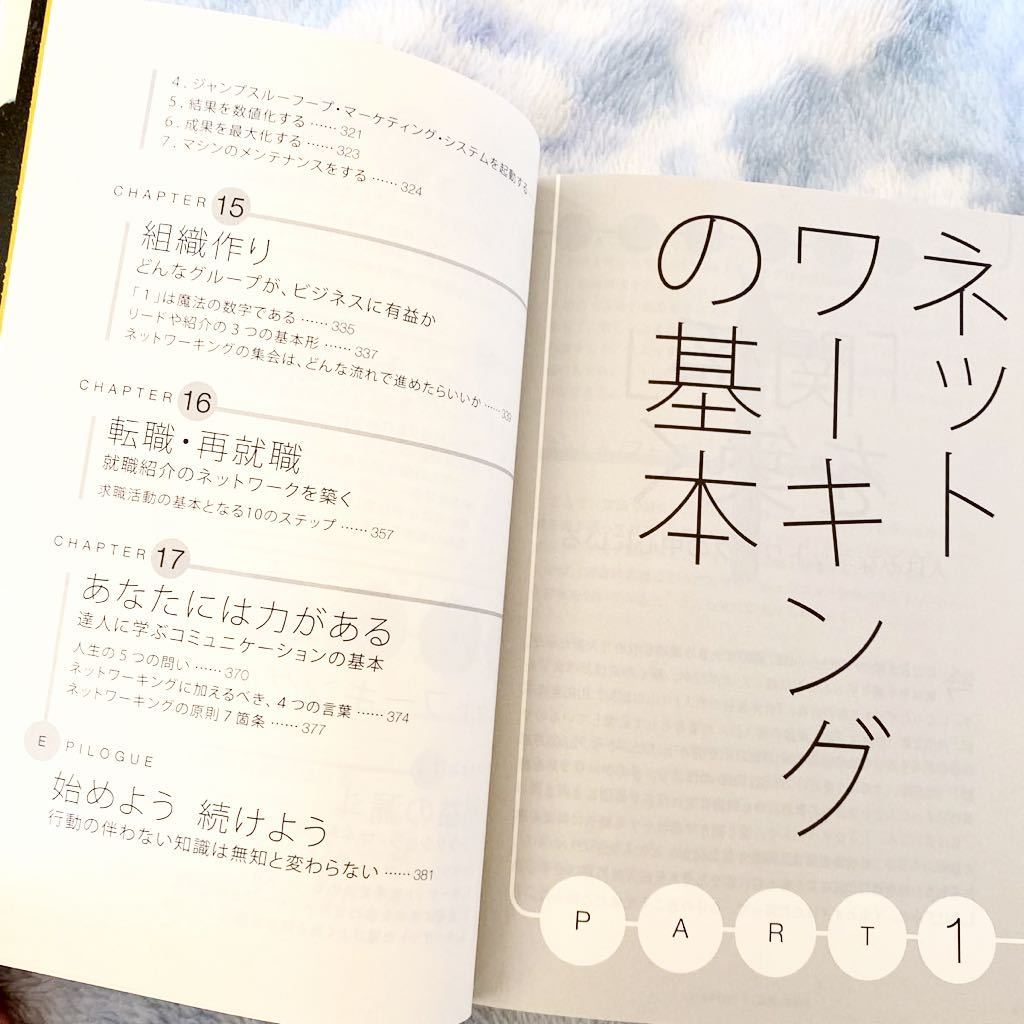 4. ジャンプスルーフープ・マーケティング・システムを起動する
5. 結果を数値化する……321
6. 成果を最大化する……323
7. マシンのメンテナンスをする……324
CHAPTER 15
組織作り
どんなグループが、ビジネスに有益か
「1」は魔法の数字である……335
リードや紹介の3つの基本形……337
ネットワーキングの集会は、どんな流れで進めたらいいか……339
CHAPTER 16
転職・再就職
就職紹介のネットワークを築く
求職活動の基本となる10のステップ……357
CHAPTER 17
あなたには力がある
達人に学ぶコミュニケーションの基本
人生の5つの問い……370
ネットワーキングに加えるべき、4つの言葉……374
ネットワーキングの原則7箇条……377
EPILOGUE
始めよう 続けよう
行動の伴わない知識は無知と変わらない……381
ネット
ワーキング
の基本
PART 1